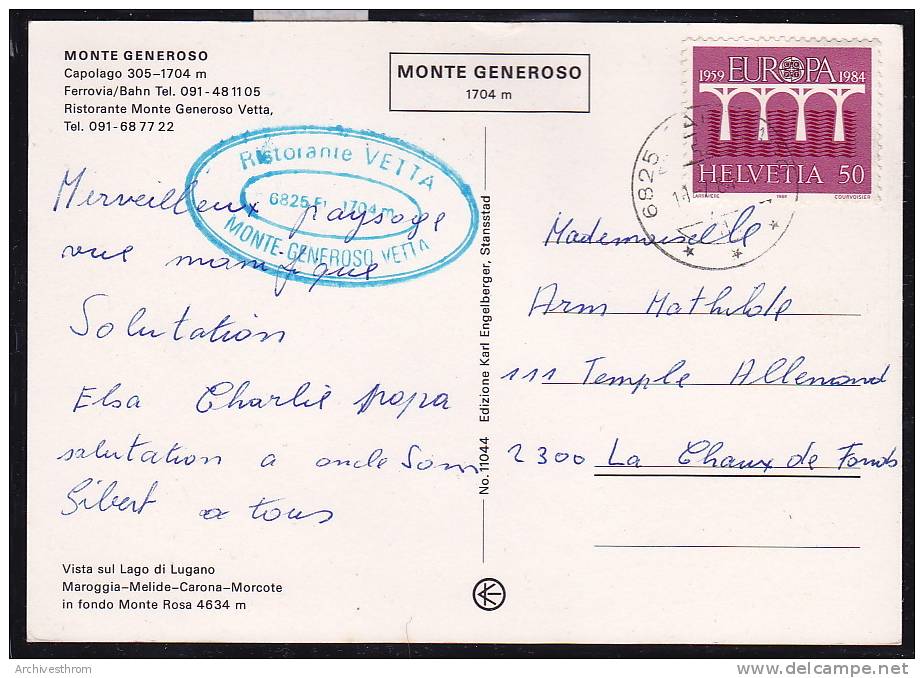 MONTE GENEROSO
Capolago 305–1704 m
Ferrovia/Bahn Tel. 091-48 11 05
Ristorante Monte Generoso Vetta,
Tel. 091-68 77 22
MONTE GENEROSO
1704 m
1959 EUROPA 1984
HELVETIA 50
COURVOISIER
6825
Ristorante VETTA
6825 1704 m
MONTE-GENEROSO VETTA
Merveilleux paysage
vue manifique
Salutation
Elsa Charlie papa
salutation a oncle Sam
Gibert a tous
Mademoiselle
Arm Mathilde
111 Temple Allemand
2300 La Chaux de Fonds
No. 11044 Edizione Karl Engelberger, Stansstad
Vista sul Lago di Lugano
Maroggia–Melide–Carona–Morcote
in fondo Monte Rosa 4634 m
Archivesthrom
delcampe.net